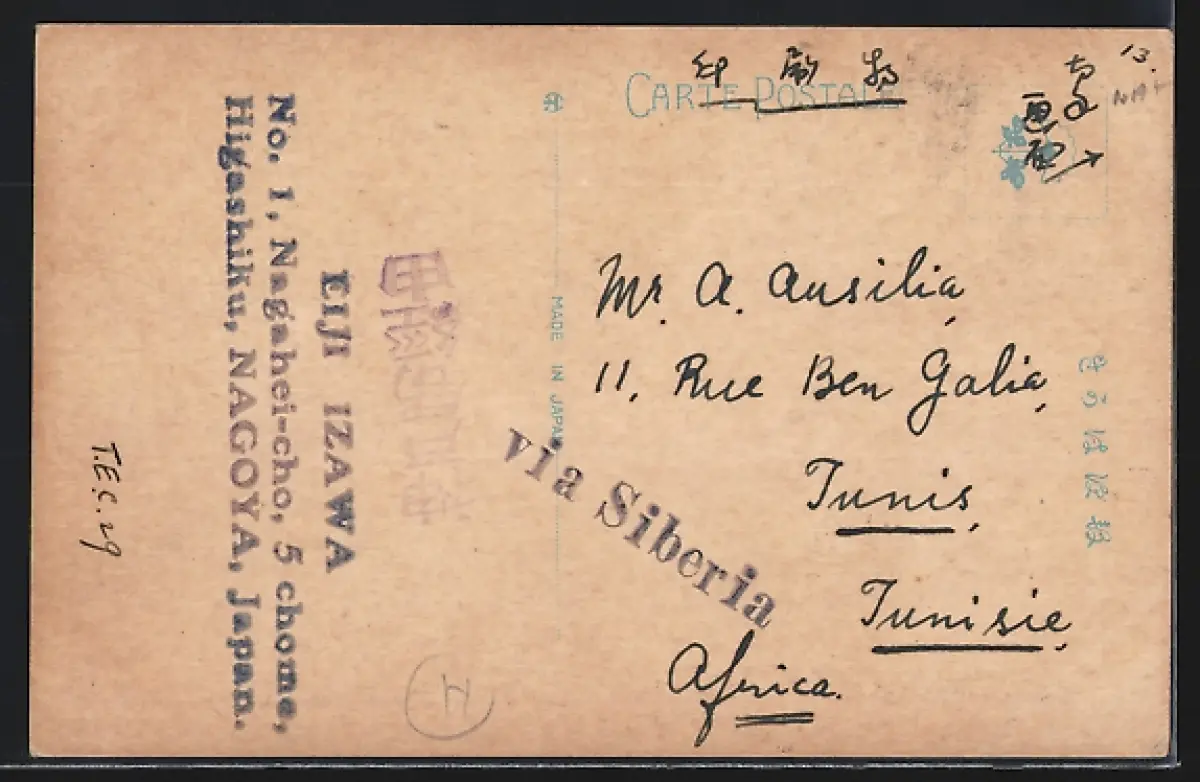 印刷物
CARTE POSTALE
13.
画面
Mr. A. Ausilia,
11, Rue Ben Galia,
Tunis,
Tunisie,
Africa.
きかは便郵
MADE IN JAPAN
via Siberia
EIJI IZAWA
No. 1, Nagahei-cho, 5 chome,
Higashiku, NAGOYA, Japan.
T.E.C. 29